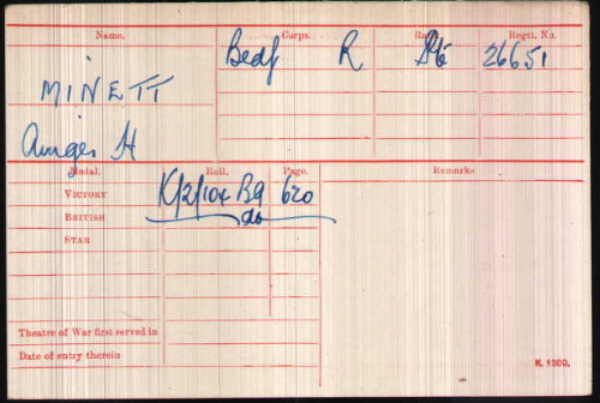 Name. Corps. Rank. Regtl. No.
MINETT Bedf R Pte 26651
H
Medal. Roll. Page. Remarks.
VICTORY K/2/104 B9 620
BRITISH do
STAR
Theatre of War first served in
Date of entry therein
K. 1380.